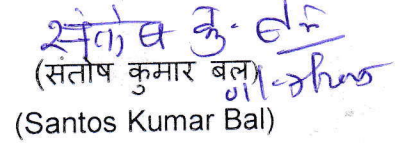 संतोष कु. बल
(संतोष कुमार बल)
(Santos Kumar Bal)